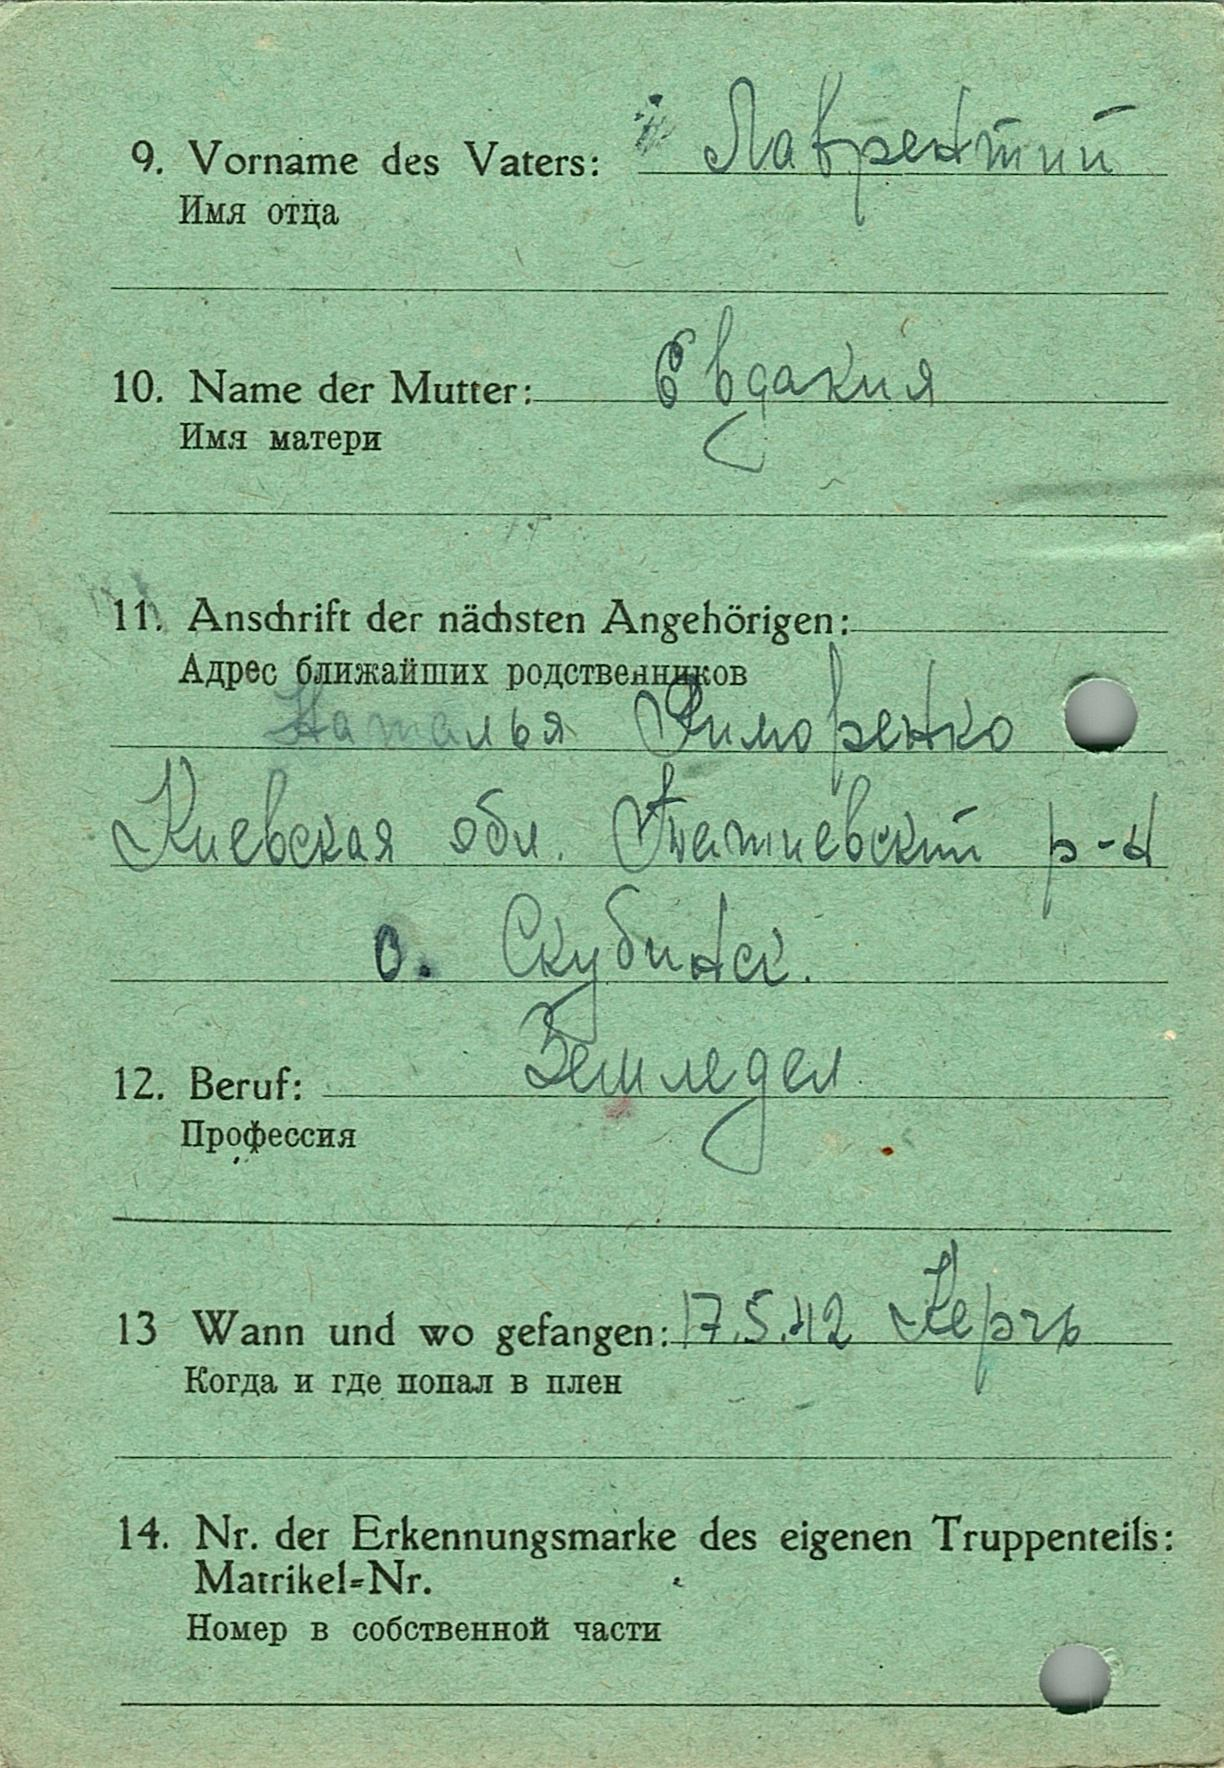 9. Vorname des Vaters: Лаврентий
Имя отца
10. Name der Mutter: Евдакия
Имя матери
11. Anschrift der nächsten Angehörigen:
Адрес ближайших родственников
Наталья
Киевская обл. р-н
с. Скубинск.
12. Beruf: Земледел
Профессия
13 Wann und wo gefangen: 17.5.42 Керчь
Когда и где попал в плен
14. Nr. der Erkennungsmarke des eigenen Truppenteils:
Matrikel=Nr.
Номер в собственной части